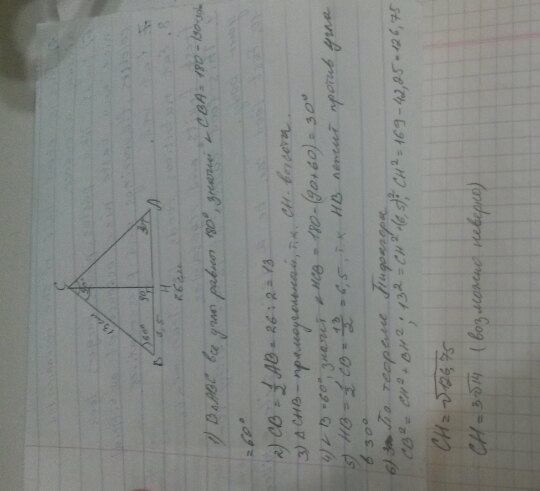 C
90°
13
60°
90
30°
B
6,5
H
A
26 см
1) В △ABC все углы равны 180°, значит ∠CBA = 180 - (90+30)
= 60°
2) CB = 1/2 AB = 26 : 2 = 13
3) △CHB - прямоугольный, т.к. CH - высота.
4) ∠B = 60°, значит ∠HCB = 180 - (90+60) = 30°
5) HB = 1/2 CB = 13/2 = 6,5, т.к. HB лежит против угла
в 30°
6) По теореме Пифагора
CB² = CH² + BH²; 13² = CH² + (6,5)²; CH² = 169 - 42,25 = 126,75
CH = √126,75
CH = 3√14 (возможно неверно)